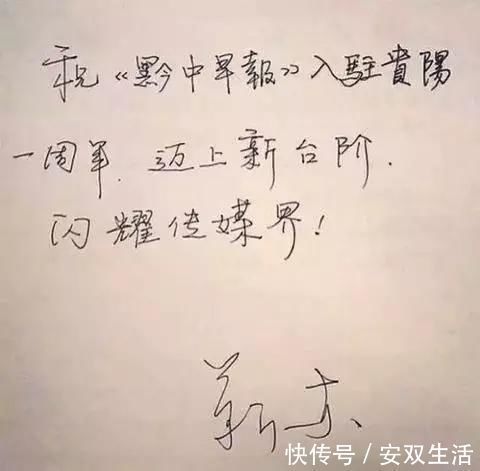 祝《黔中早報》入駐貴陽
一周年.迈上新台阶.
闪耀传媒界!
靳东
快传号/安双生活